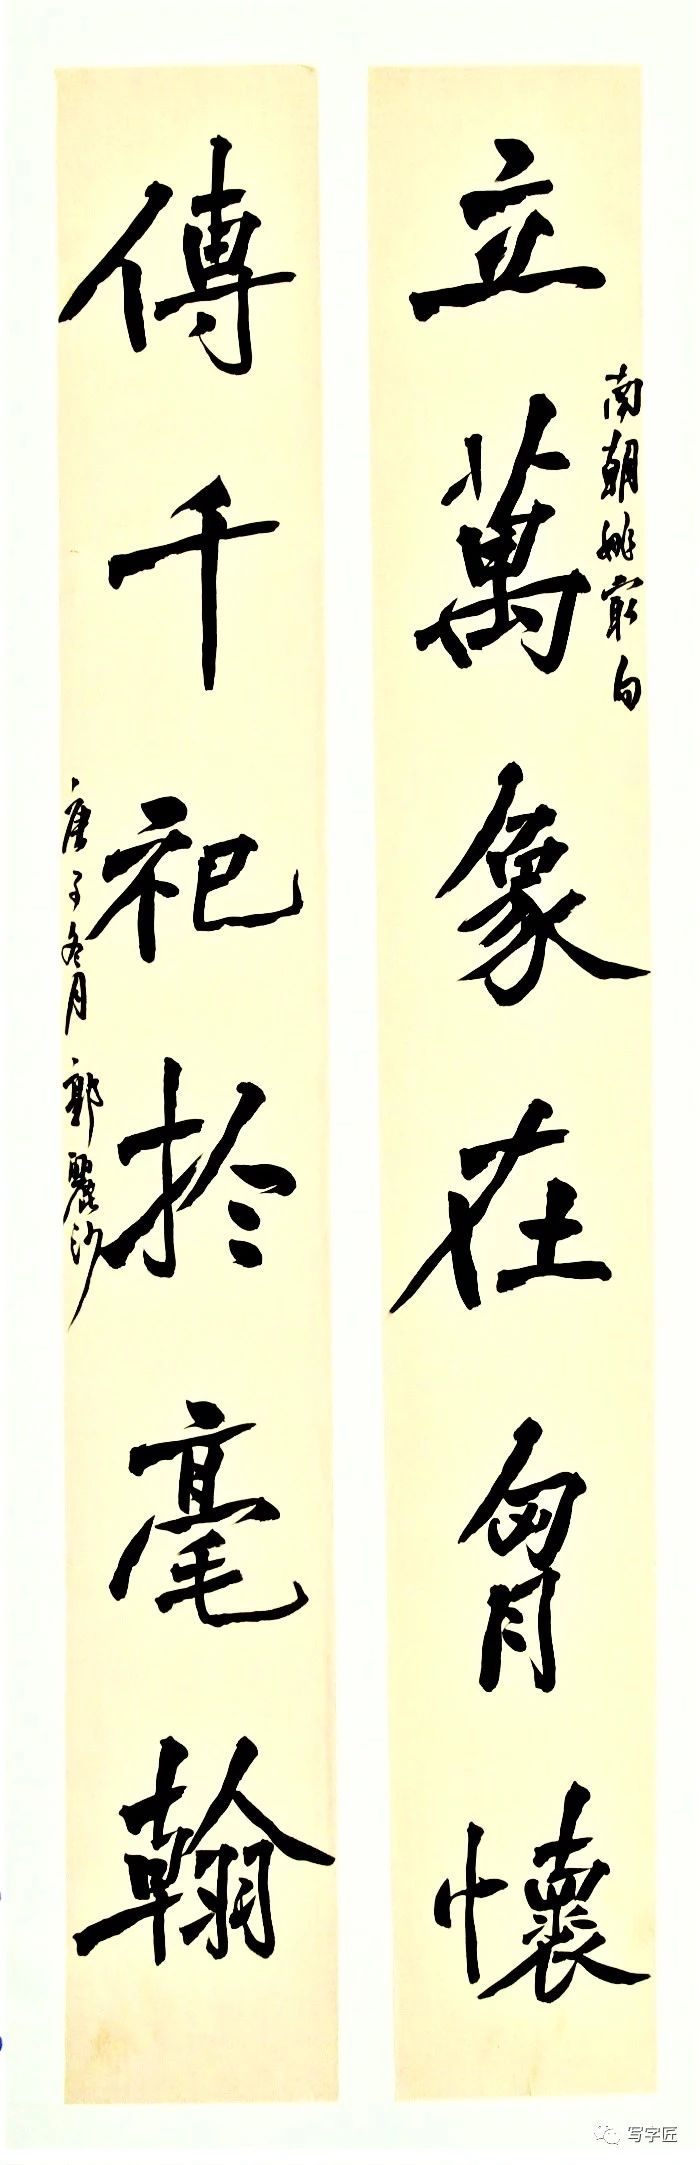 南朝姚最句
立萬象在胷懷
傳千祀於毫翰
庚子冬月 郭麗沙
写字匠